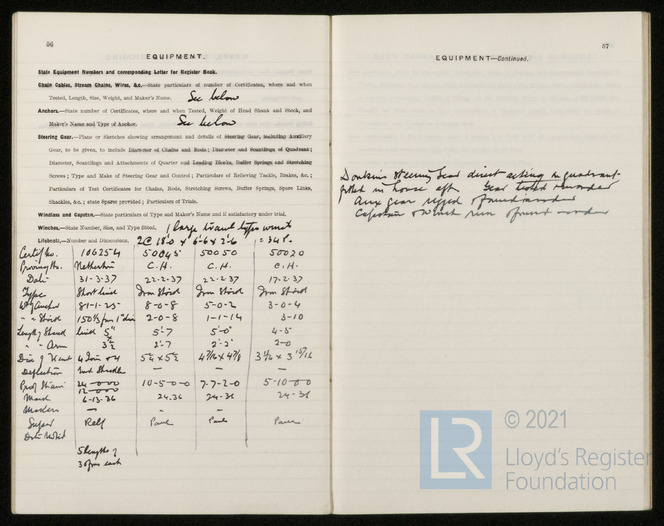 56
EQUIPMENT.
State Equipment Numbers and corresponding Letter for Register Book.
Chain Cables, Stream Chains, Wires, &c.—State particulars of number of Certificates, where and when
Tested, Length, Size, Weight, and Maker's Name. See below
Anchors.—State number of Certificates, where and when Tested, Weight of Head Shank and Stock, and
Maker's Name and Type of Anchor. See below
Steering Gear.—Plans or Sketches showing arrangement and details of Steering Gear, including Auxiliary
Gear, to be given, to include Diameter of Chains and Rods; Diameter and Scantlings of Quadrant;
Diameter, Scantlings and Attachments of Quarter and Leading Blocks, Buffer Springs and Stretching
Screws; Type and Make of Steering Gear and Control; Particulars of Relieving Tackle, Brakes, &c.;
Particulars of Test Certificates for Chains, Rods, Stretching Screws, Buffer Springs, Spare Links,
Shackles, &c.; state Spares provided; Particulars of Trials.
Windlass and Capstan.—State particulars of Type and Maker's Name and if satisfactory under trial.
Winches.—State Number, Size, and Type fitted. 1 large trawl type winch
Lifeboats.—Number and Dimensions, 2 @ 18·0 x 6·6 x 2·6
Certif No. 106254 50045 50050 50020
Proving Ho. Netherton C.H. C.H. C.H.
Date 31-3-37 22-2-37 22-2-37 17-2-37
Type Short link Iron Stock Iron Stock Iron Stock
Wt of Anchor 81-1-25 8-0-8 5-0-2 3-0-4
" " Stock 2-0-8 1-1-14 3-10
Length of Shank link 5" 5'-7 5'-0" 4-5
" " Arm 2'-7 2'-2" 2-0
Dia of
Deflection — — —
Proof Strain 24-0-0-0 10-5-0-0 7-7-2-0 5-10-0-0
12-0-0-0
6-13-36 24.36 24-36 24-36
Makers —
Super Relf Paul Paul Paul
5 lengths of
3 each
57
EQUIPMENT—Continued.
Donkin Steering Gear direct acting on quadrant
fitted in house aft. Gear tested in order
Aux gear rigged & found in order
Capstan & Winch run & found in order
© 2021
LR
Lloyd's Register
Foundation